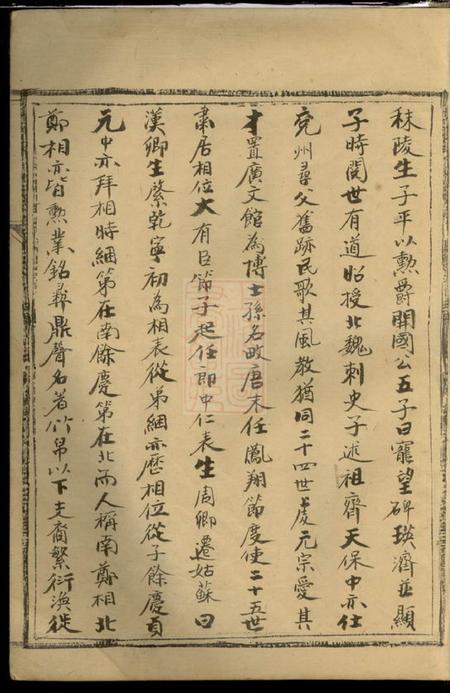 秣陵生子平以勲爵開國公五子曰寵望碑瑛濟並顯
子時閱世有道昭授北魏刺史子述祖齊天保中亦仕
兖州尋父舊跡民歌其風敎猶同二十四世虔元宗愛其
才置廣文館為博士孫名畋唐末任鳳翔節度使二十五世
肅居相位大有臣節子起任郎中仁表生周卿遷姑蘇曰
漢卿生綮乾寧初為相表從弟絪亦歷相位從子餘慶貞
元中亦拜相時絪第在南餘慶第在北而人稱南鄭相北
鄭相亦皆勲業銘彛鼎聲名著竹帛以下支裔繁衍渙徙